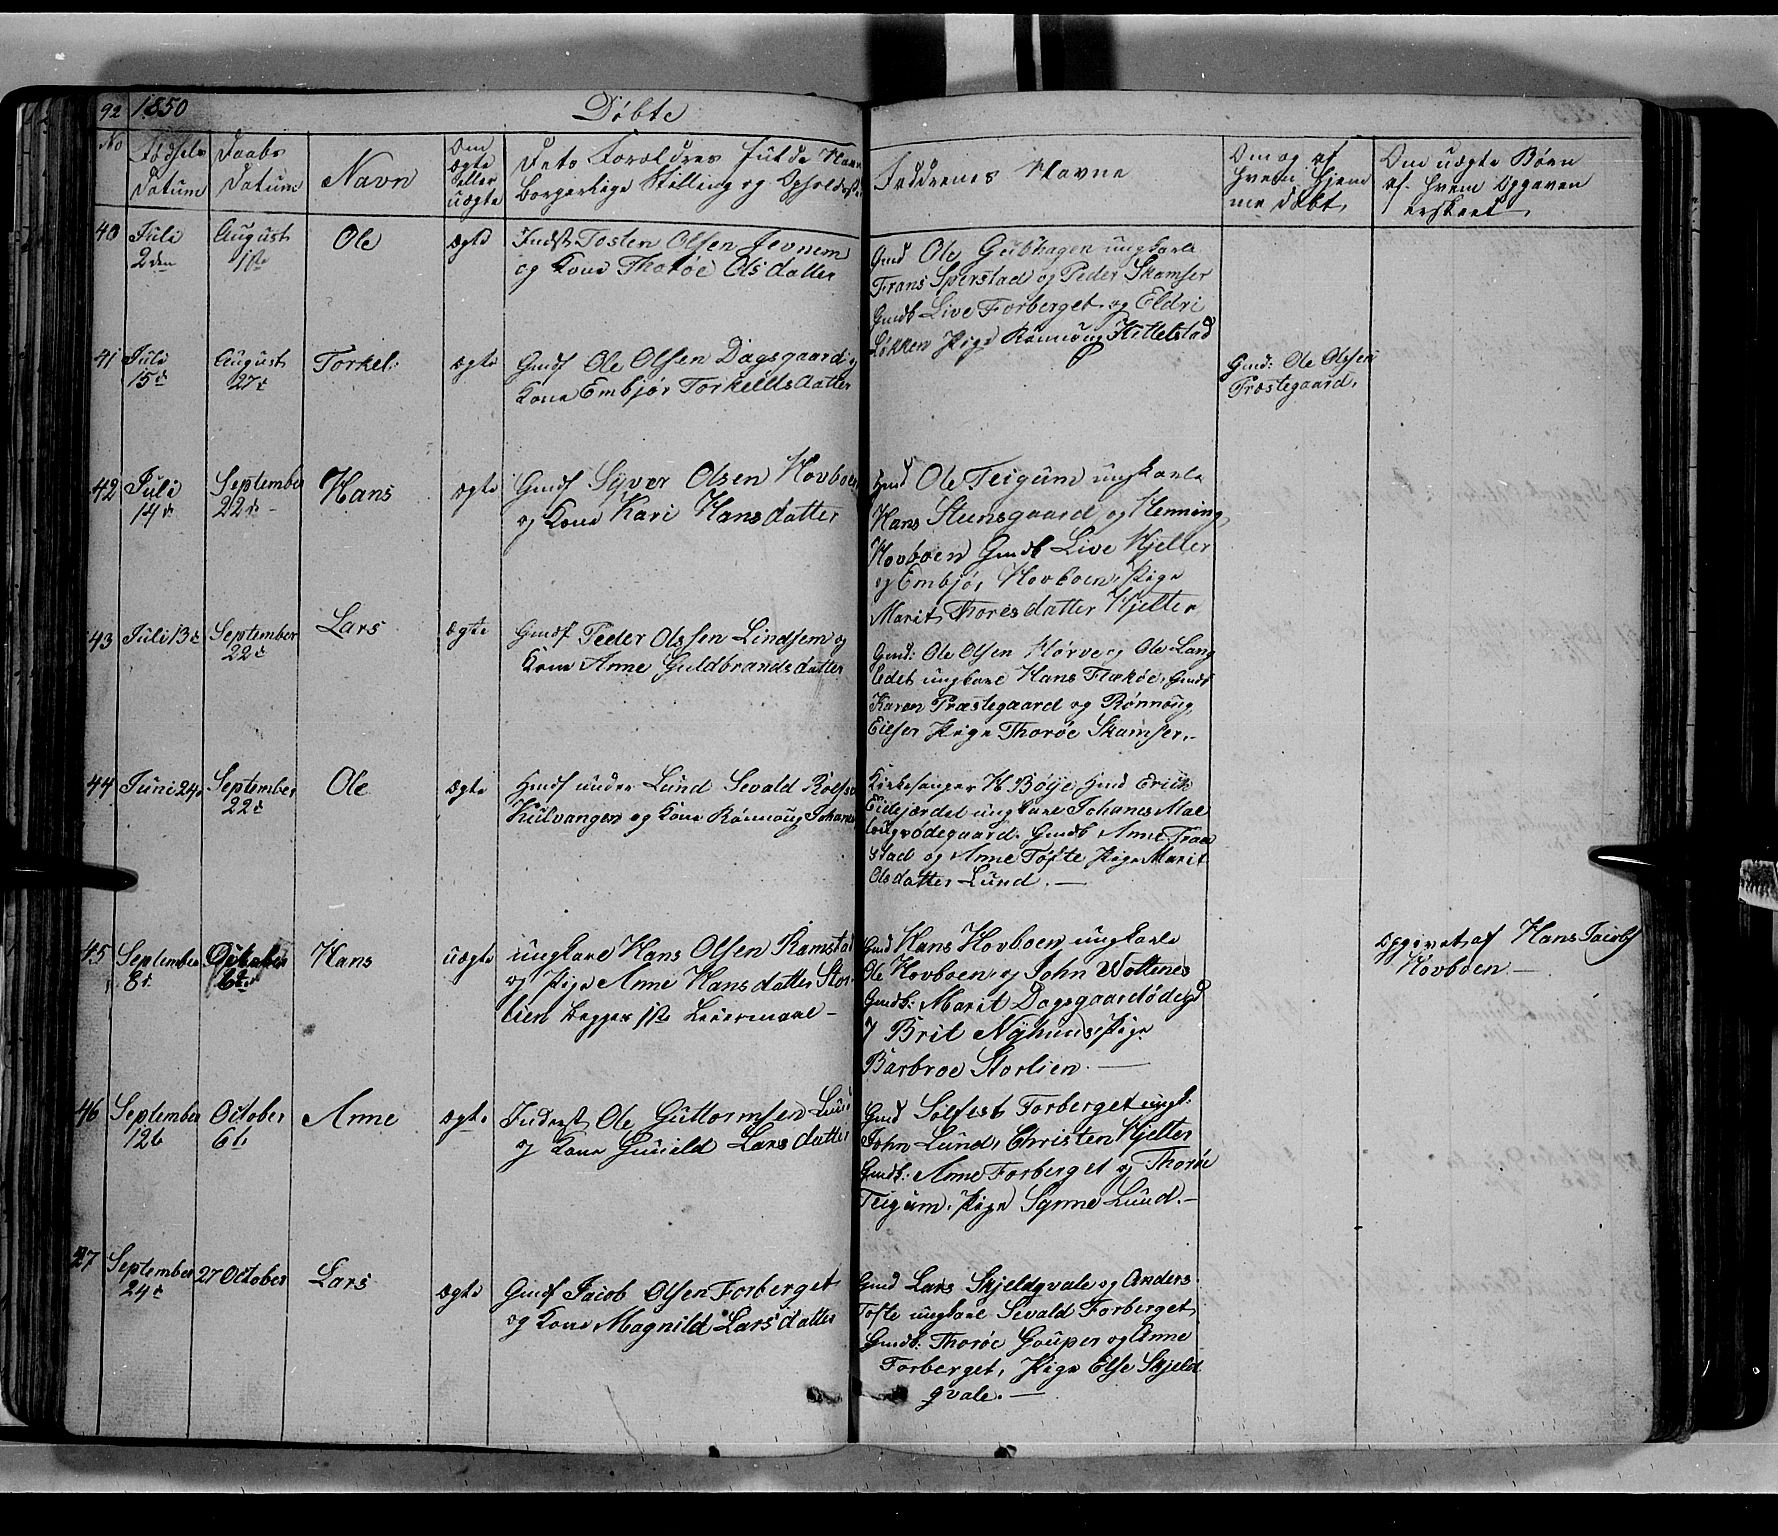 92 1850 Döbte
No
Födsels Datum
Daabs Datum
Navn
Om ægte eller uægte
Dets Forældres fulde Navn
borgerlige Stilling og Opholdsst.
Faddrenes Navne
Om og af hvem hjemme döbt
Om uægte Börn af hvem Opgaven er skeet
40 Juli 2den August 1ste Ole ægte
Indst Tosten Olsen Jevnem
og Kone Thoröe Olsdatter
Gmd Ole Gubhagen ungkarle
Frans Sperstad og Peder Skamser
Gmdk Live Forberget og Eldri
Lökken Pige Rönnoug Kittelstad
41 Juli 15de August 27de Torkel ægte
Gmdf Ole Olsen Dagsgaard og
Kone Embjör Torkeldsdatter
Gmd: Ole Olssen
Præstegaard.
42 Juli 14de September 22de Hans ægte
Gmdf Syver Olsen Hovboen
og Kone Kari Hansdatter
Gmd Ole Teigum ungkarle
Hans Steensgaard og Henning
Hovboen Gmdk Live Kjelter
og Embjör Hovboen, Pige
Marit Thoresdatter Kjelter
43 Juli 13de September 22de Lars ægte
Gmdf Peder Olssen Lindsem og
Kone Anne Guldbrandsdatter
Gmd: Ole Olsen Hörve og Ole Lang
ledet ungkarl Hans Flæköe, Gmdk
Karen Præstegaard og Rönnoug
Pige Thoröe Skamser.
44 Juni 24de September 22de Ole ægte
Hmdf under Lund Sevald Rolfsen
Kulvangen og Kone Rönnoug Johanes
Kirkesanger H Böye Gmd Erick
ungkarl Johanes
ödegaard. Gmdk Anne
stad og Anne Tofte Pige Marit
Olsdatter Lund.
45 September 8de October 6te Hans uægte
ungkarl Hans Olsen Ramstad
og Pige Anne Hansdatter Stor-
lien Begges 1ste Leiermaal
Gmd Hans Hovboen ungkarle
Ole Hovboen, og John Wottenes
Gmdk: Marit Dagsgaardödegd
Brit Nyhuus Pige
Barbroe Storlien
Opgivet af Hans Jacobs
Hovboen
46 September 12te October 6te Anne ægte
Inderst Ole Guttormsen Lund
og Kone Gunild Larsdatter
Gmd Solfest Forberget ungk:
John Lund, Christen Kjelter
Gmdk: Anne Forberget og Thoröe
Teigum, Pige Synne Lund.
47 September 24de 27 October Lars ægte
Gmdf Jacob Olsen Forberget
og Kone Magnild Larsdatter
Gmd Lars Skjeldqvale og Anders
Tofte ungkarl Sevald Forberget
Gmdk: Thoröe Gauper og Anne
Forberget, Pige Else Skjeld
qvale.